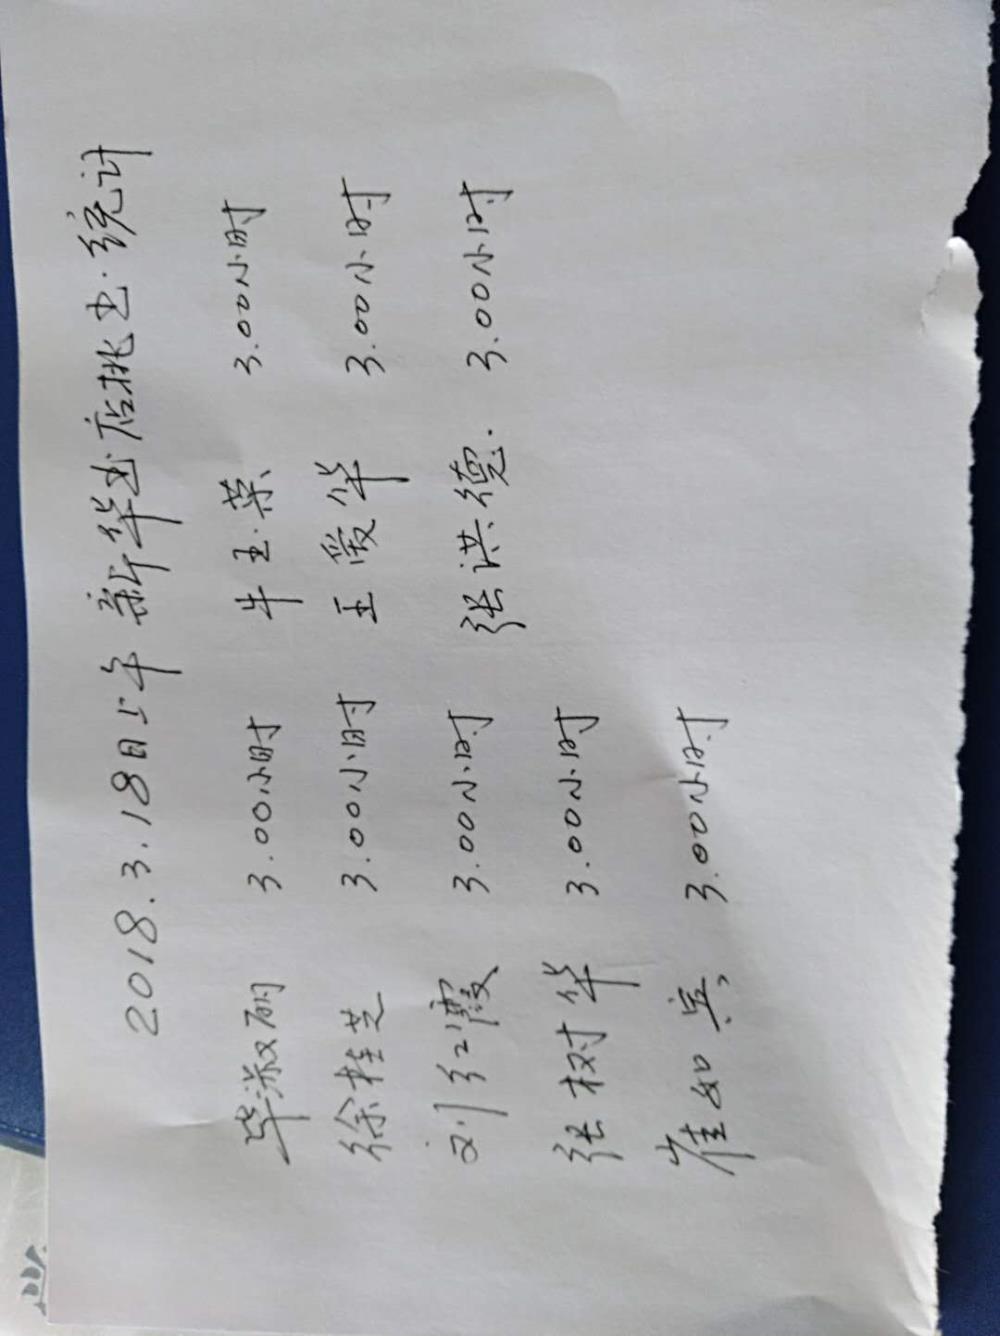 2018.3.18日上午 新华书店挑书.统计
毕淑丽 3.00小时 牛玉荣 3.00小时
徐桂芝 3.00小时 王爱华 3.00小时
刘红霞 3.00小时 张洪德. 3.00小时
张树华 3.00小时
崔如宾 3.00小时